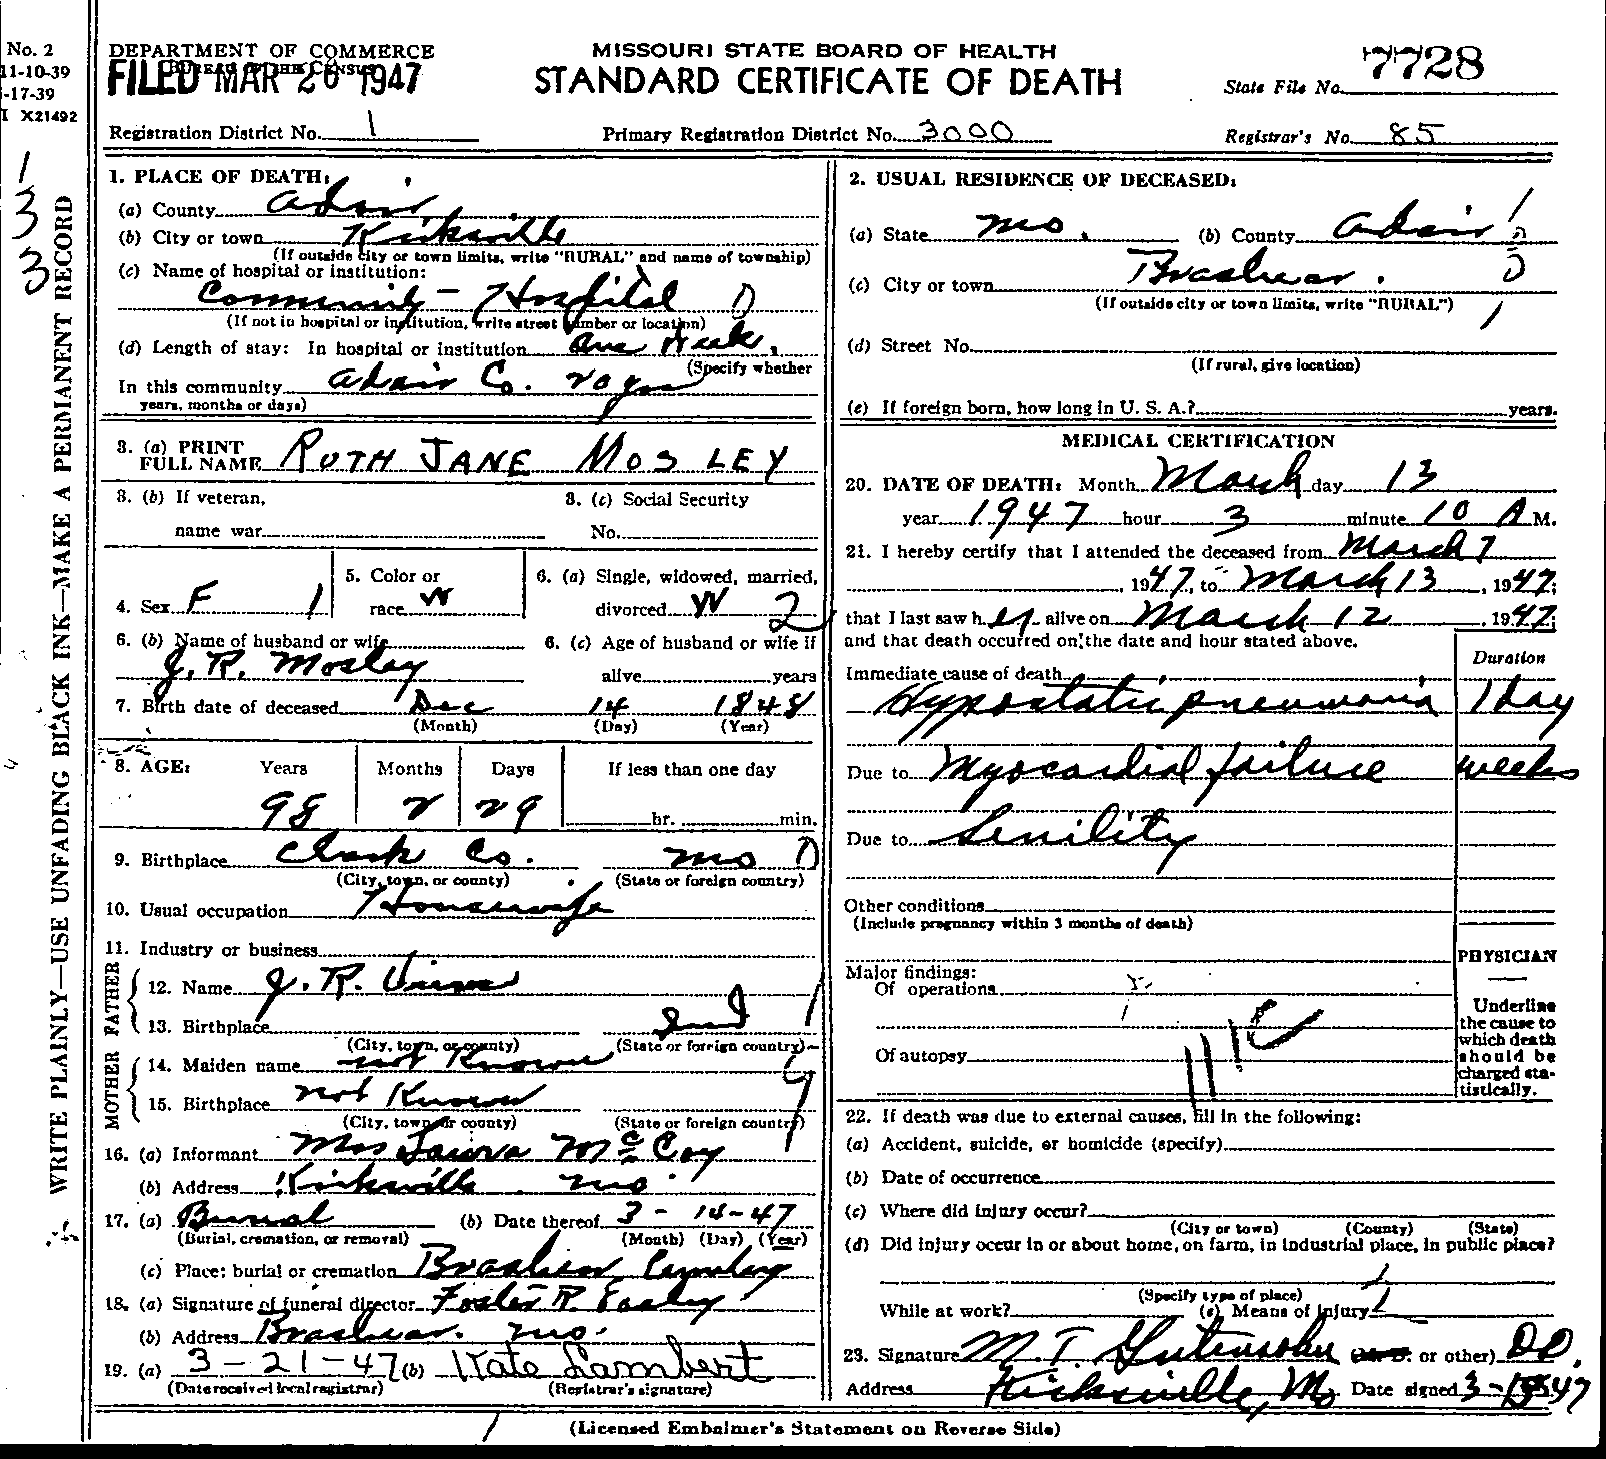 No. 2
11-10-39
-17-39
I X21492
DEPARTMENT OF COMMERCE
BUREAU OF THE CENSUS
FILED MAR 20 1947
MISSOURI STATE BOARD OF HEALTH
STANDARD CERTIFICATE OF DEATH
State File No. 7728
Registration District No. 1
Primary Registration District No. 3000
Registrar's No. 85
1
3
3
WRITE PLAINLY—USE UNFADING BLACK INK—MAKE A PERMANENT RECORD
1. PLACE OF DEATH:
(a) County Adair
(b) City or town Kirksville
(If outside city or town limits, write "RURAL" and name of township)
(c) Name of hospital or institution:
Community - Hospital 0
(If not in hospital or institution, write street number or location)
(d) Length of stay: In hospital or institution one Week.
(Specify whether
In this community Adair Co. 20 yrs
years, months or days)
3. (a) PRINT
FULL NAME RUTH JANE MOSLEY
3. (b) If veteran,
name war
3. (c) Social Security
No.
4. Sex F 1
5. Color or
race W
6. (a) Single, widowed, married,
divorced W 2
6. (b) Name of husband or wife
J. R. Mosley
6. (c) Age of husband or wife if
alive years
7. Birth date of deceased Dec 14 1848
(Month) (Day) (Year)
8. AGE: Years Months Days If less than one day
98 2 29 hr. min.
9. Birthplace Clark Co. Mo 0
(City, town, or county) (State or foreign country)
10. Usual occupation Housewife
11. Industry or business
FATHER
12. Name J. R.
13. Birthplace Ind 1
(City, town, or county) (State or foreign country)
MOTHER
14. Maiden name not Known
15. Birthplace not Known 9
(City, town or county) (State or foreign country)
16. (a) Informant Mrs Laura McCoy
(b) Address Kirksville Mo
17. (a) Burial (b) Date thereof 3 - 14 - 47
(Burial, cremation, or removal) (Month) (Day) (Year)
(c) Place: burial or cremation Brashear Cemetery
18. (a) Signature of funeral director Foster R. Easley
(b) Address Brashear. Mo.
19. (a) 3-21-47 (b) Kate Lambert
(Date received local registrar) (Registrar's signature)
2. USUAL RESIDENCE OF DECEASED:
(a) State Mo. (b) County Adair
(c) City or town Brashear.
(If outside city or town limits, write "RURAL")
(d) Street No.
(If rural, give location)
(e) If foreign born, how long in U. S. A.? years.
MEDICAL CERTIFICATION
20. DATE OF DEATH: Month March day 13
year 1947 hour 3 minute 10 A M.
21. I hereby certify that I attended the deceased from March 7
, 1947, to March 13 , 1947;
that I last saw h er alive on March 12 , 1947;
and that death occurred on the date and hour stated above.
Duration
Immediate cause of death
Hypostatic pneumonia 1 Day
Due to Myocardial failure weeks
Due to Senility
Other conditions
(Include pregnancy within 3 months of death)
PHYSICIAN
Major findings:
Of operations
Of autopsy
Underline
the cause to
which death
should be
charged sta-
tistically.
22. If death was due to external causes, fill in the following:
(a) Accident, suicide, or homicide (specify)
(b) Date of occurrence
(c) Where did injury occur?
(City or town) (County) (State)
(d) Did injury occur in or about home, on farm, in industrial place, in public place?
(Specify type of place)
While at work? (e) Means of injury
23. Signature M. T. Gutensohn (M. D. or other) DO.
Address Kirksville, Mo Date signed
(Licensed Embalmer's Statement on Reverse Side)